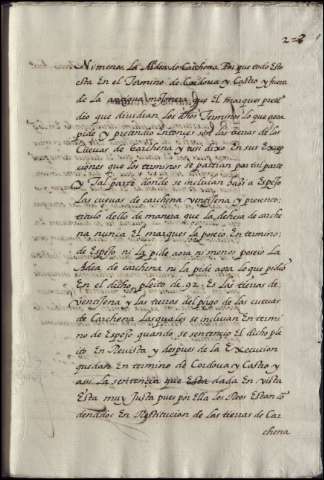 Ni menos la Aldea de Carchena. Por que todo esto
esta En el Termino de Cordova y Castro y fuera
de La antigua que El marques
dio que dividian los dhos Terminos lo que aora
pide y pretendio Entonces son las tierras de los
Cuevas de Carchena y por dixo En sus
ciones que los terminos se partian por tal parte
y Tal parte donde se incluian baxo a Espejo
Las cuevas de carchena ventisena y presento
titulo dello de manera que la dehesa de carche
na nunca El marques la poseio En termino
de Espejo ni la pide aora ni menos poseio La
Aldea de carchena ni la pide aora lo que pidio
En el dicho pleito de 92. Es las tierras de
ventisena y las tierras del de las cuevas
de Carchena Lasquales se incluian En termi
no de Espejo quando se sentencio El dicho ple
ito En Revista y despues de la Execucion
quedan En termino de Cordova y Castro y
asi La sentencia que Esta dada En vista
Esta muy Justa pues por Ella los Reos Estan con
denados En Restitucion de las tierras de Car
chena